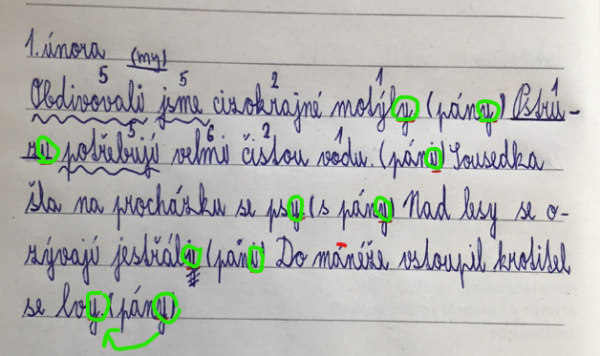 1. února (my)
5 5 2 1
Obdivovali jsme cizokrajné motýly (pány) Pstru-
5 6 2 1
zi potřebují velmi čistou vodu. (páni) Sousedka
šla na procházku se psy. (s pány) Nad lesy se o-
zývají jestřábi (páni) Do manéže vstoupil krotitel
se lvy. (pány)